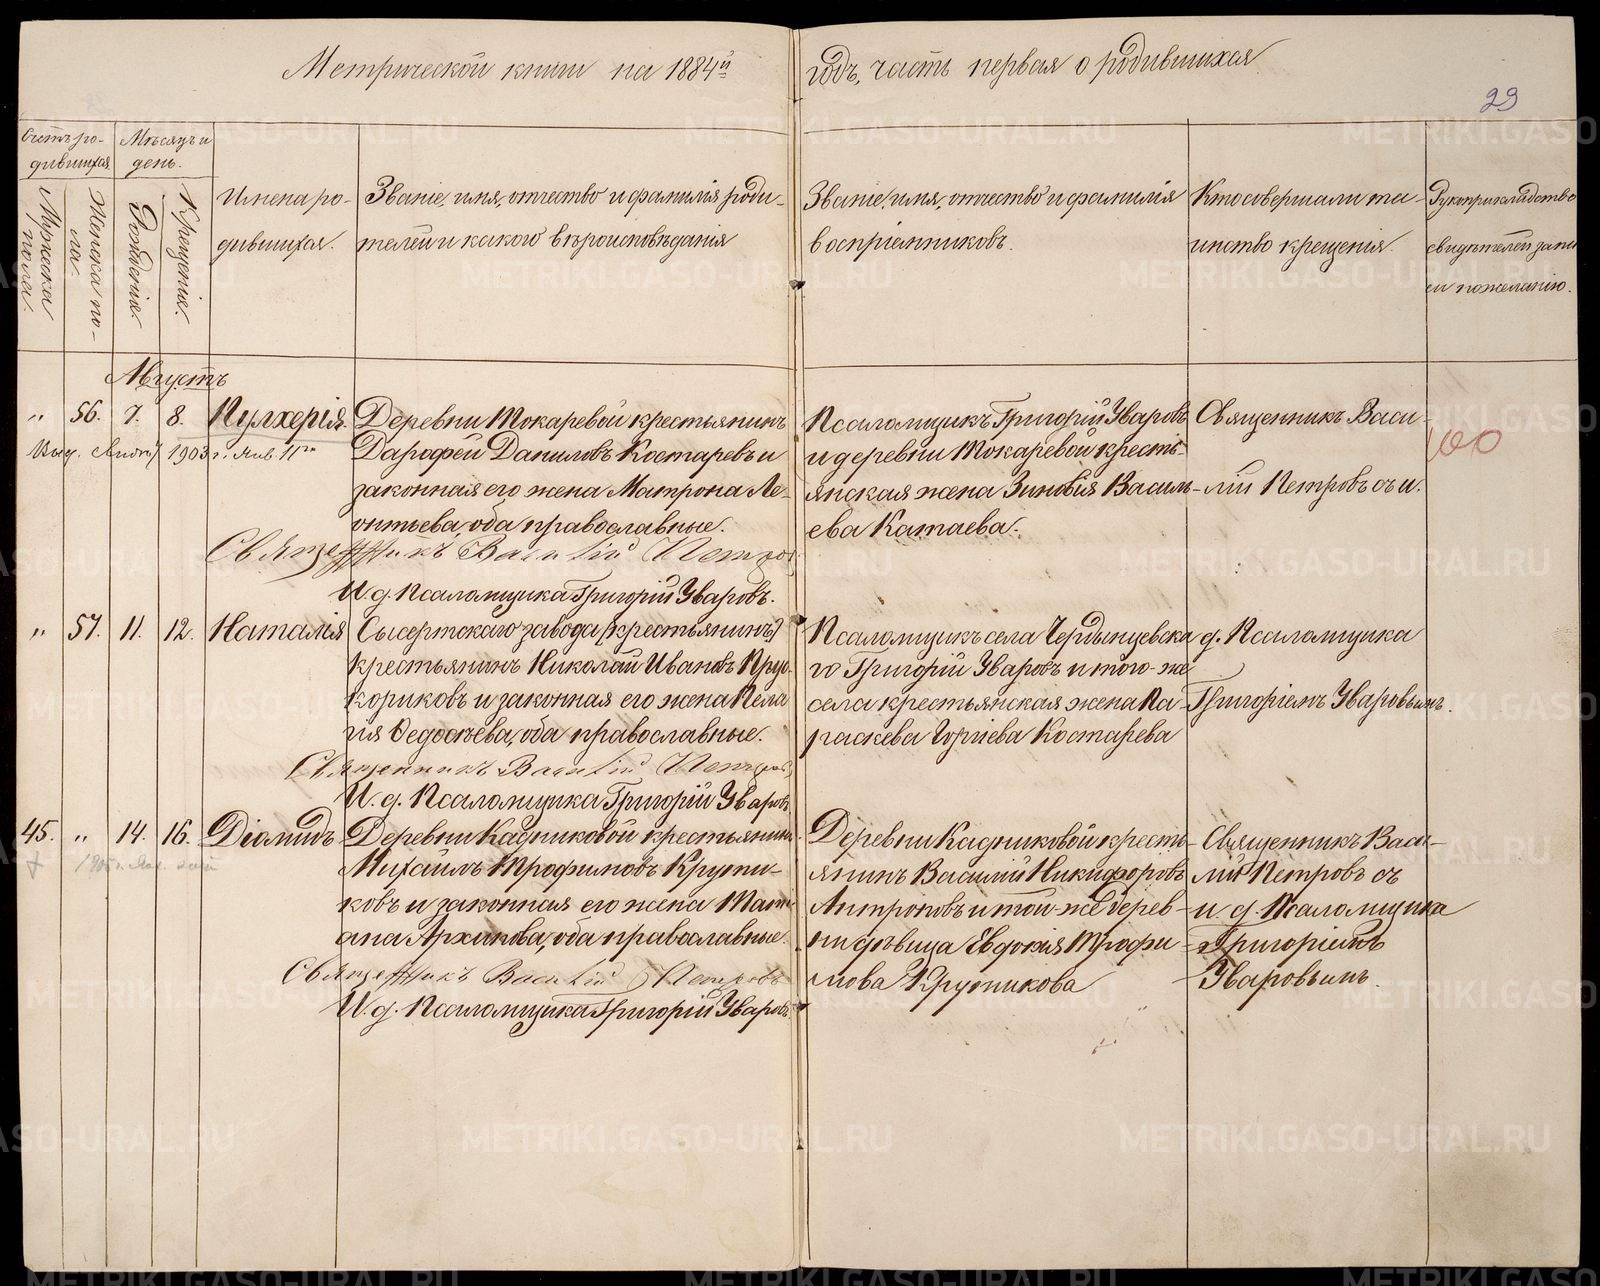 Метрической книги на 1884й
годъ, часть первая о родившихся
29
Счетъ ро-
дившихся
Мѣсяцъ и
день.
Мужеска
пола.
Женска по-
ла
Рожденіе.
Крещеніе.
Имена ро-
дившихся.
Званіе, имя, отчество и фамилія роди-
телей и какого вѣроисповѣданія
Званіе, имя, отчество и фамилія
воспріемниковъ.
Кто совершали та-
инство крещенія.
Рукоприкладство
свидѣтелей запи
си по желанію.
Августъ
" 56. 7. 8. Пулхерія.
1903 г. Янв. 11го
Деревни Токаревой крестьянинъ
Дарофей Даниловъ Костаревъ и
законная его жена Матрона Ле-
онтьева, оба православные.
Священникъ Василій Петров
И. д. Псаломщика Григорій Уваровъ.
Псаломщикъ Григорій Уваровъ
и деревни Токаревой кресть-
янская жена Зиновія Василь-
ева Катаева.
Священникъ Васи-
лій Петровъ съ и.
100
" 57. 11. 12. Наталія
Сысертскаго завода [крестьянинъ]
крестьянинъ Николай Ивановъ Про-
кориковъ и законная его жена Пела
гія Федосѣева, оба православные.
Священникъ Василій Петров
И. д. Псаломщика Григорій Уваровъ
Псаломщикъ села Чердынцевска
го Григорій Уваровъ и того-же
села крестьянская жена Па-
раскева Гориева Костарева
д. Псаломщика
Григоріемъ Уваровымъ.
45. " 14. 16. Діомидъ
Деревни Кадниковой крестьянинъ
Михаилъ Трофимовъ Крупи-
ковъ и законная его жена Тати
ана Архипова, оба православные.
Священникъ Василій Петровъ
И. д. Псаломщика Григорій Уваровъ
Деревни Кадниковой кресть-
янинъ Василій Никифоровъ
Антроповъ и той-же дерев-
ни дѣвица Евдокія Трофи-
мова Крупникова
Священникъ Васи-
лій Петровъ съ
и. д. Псаломщика
Григоріемъ
Уваровымъ.
METRIKI.GASO-URAL.RU